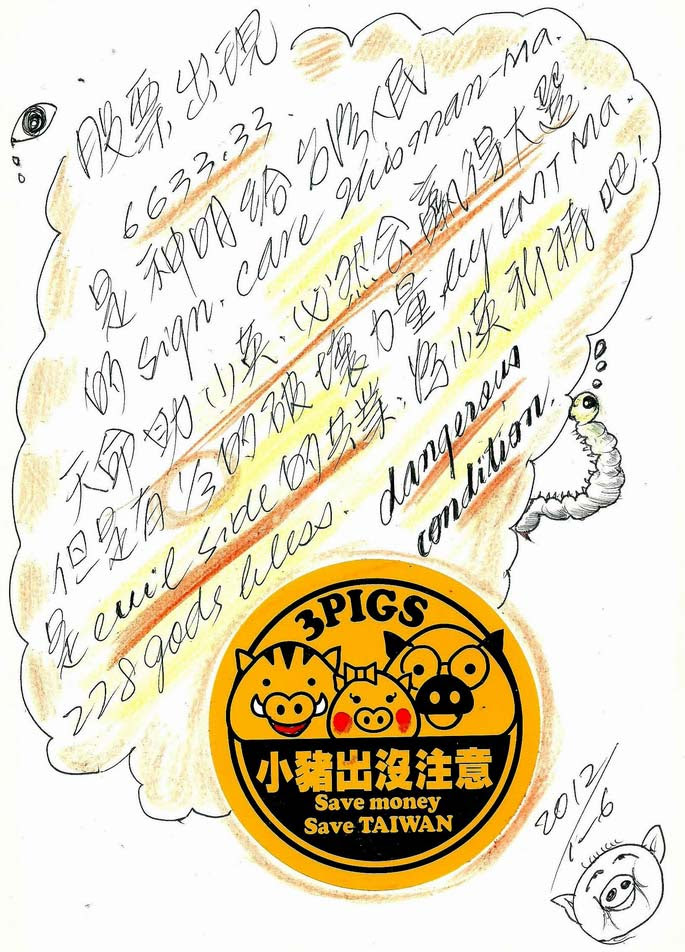 股票出現
6633.33
是神明給台灣人民
的sign. care this man-ma.
天命助小英,必然會贏得大選.
但是有1/3的破壞力量 by KMT ma.
是evil side的共業,為小英祈禱吧!
228 gods bless.
dangerous
condition.
3PIGS
小豬出沒注意
Save money
Save TAIWAN
2012
1-6